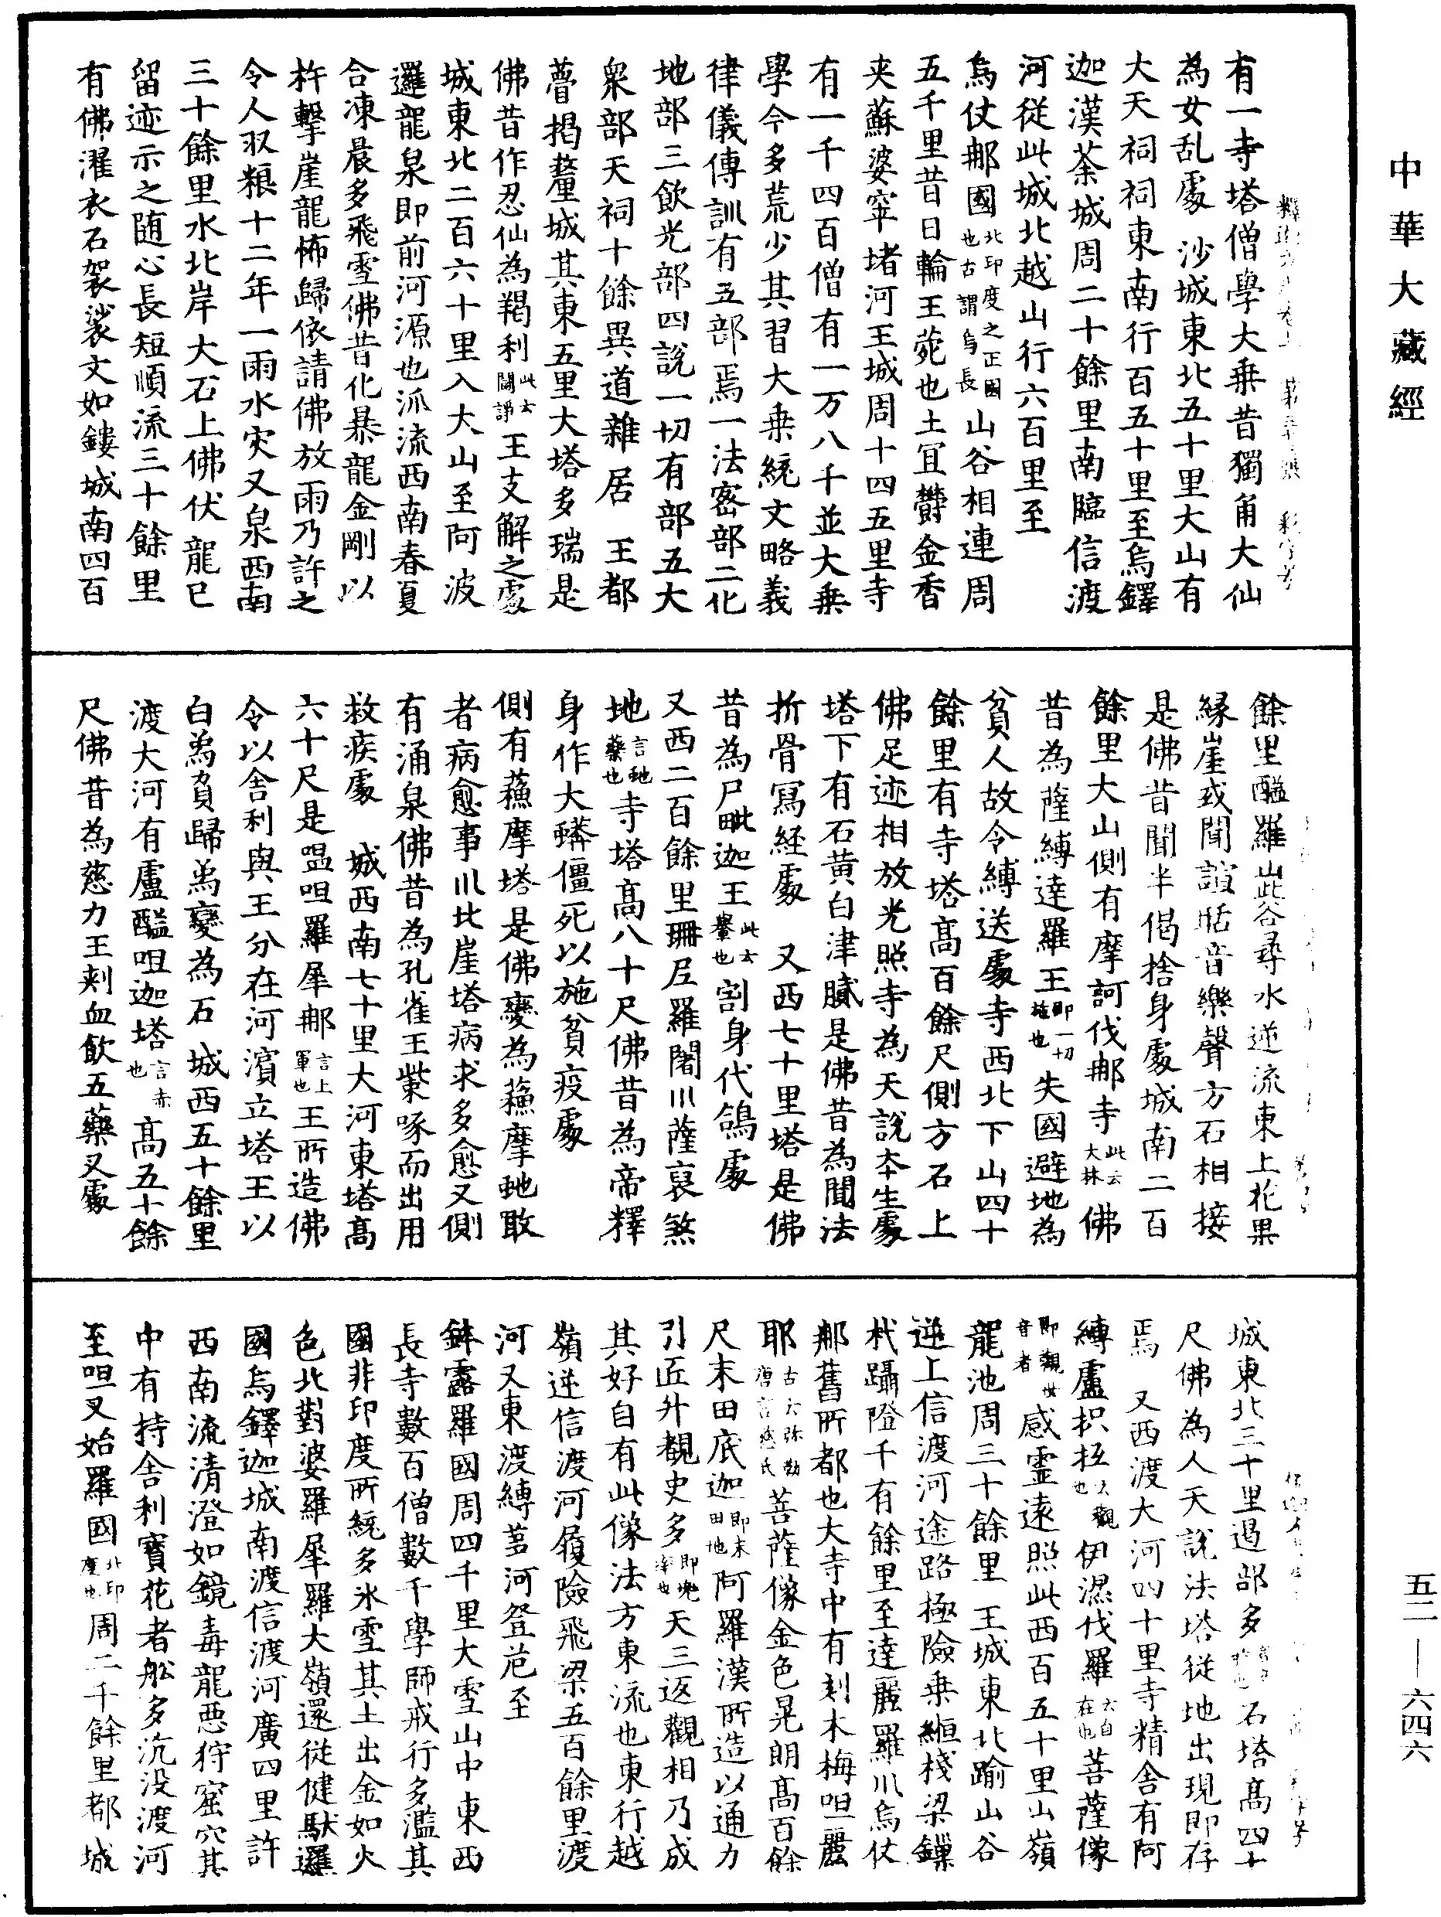 中華大藏經
有一寺塔僧學大乗昔獨角大仙
為女乱處　沙城東北五十里大山有
大天祠祠東南行百五十里至烏鐸
迦漢荼城周二十餘里南臨信渡
河從此城北越山行六百里至
烏仗郍國北印度之正國也古謂烏長山谷相連周
五千里昔日輪王苑也土宜欝金香
夹蘇婆窣堵河王城周十四五里寺
有一千四百僧有一万八千並大乗
學今多荒少其習大乗統文略義
律儀傳訓有五部焉一法宻部二化
地部三飲光部四說一切有部五大
衆部天祠十餘異道雜居　王都
瞢揭釐城其東五里大塔多瑞是
佛昔作忍仙為羯利此云闘諍王支解之處
城東北二百六十里入大山至阿波
邏龍泉即前河源也派流西南春夏
合凍晨多飛雪佛昔化暴龍金剛以
杵擊崖龍怖歸依請佛放雨乃許之
令人収粮十二年一雨水灾又泉西南
三十餘里水北岸大石上佛伏龍已
留迹示之随心長短順流三十餘里
有佛濯衣石袈裟文如鏤城南四百
餘里醯羅山此谷尋水逆流東上花果
縁崖或聞諠聒音樂聲方石相接
是佛昔聞半偈捨身處城南二百
餘里大山側有摩訶伐郍寺此云大林佛
昔為薩縛達羅王即一切施也失國避地為
貧人故令縛送處寺西北下山四十
餘里有寺塔髙百餘尺側方石上
佛足迹相放光照寺為天說本生處
塔下有石黄白津膩是佛昔為聞法
折骨寫経處　又西七十里塔是佛
昔為尸毗迦王此云與也割身代鴿處
又西二百餘里珊尼羅闍川薩裒煞
地言虵藥也寺塔髙八十尺佛昔為帝釋
身作大蟒僵死以施貧疫處
側有蘓摩塔是佛變為蘓摩虵敢
者病愈事川北崖塔病求多愈又側
有涌泉佛昔為孔雀王觜啄而出用
救疾處　城西南七十里大河東塔髙
六十尺是嗢呾羅犀郍言上軍也王所造佛
令以舎利與王分在河濱立塔王以
白烏負歸烏變為石　城西五十餘里
渡大河有盧醯呾迦塔言赤也髙五十餘
尺佛昔為慈力王刾血飲五藥叉處
城東北三十里遏部多石塔髙四十
尺佛為人天說法塔從地出現即存
焉　又西渡大河四十里寺精舎有阿
縛盧枳𢓜云觀也伊濕伐羅云自在也菩薩像
即觀世音者感霊遠照此西百五十里山嶺
龍池周三十餘里　王城東北踰山谷
逆上信渡河途路極險乗絙棧梁鏁
杙躡隥千有餘里至達麗羅川烏仗
郍舊所都也大寺中有刻木梅呾麗
耶古云弥勒唐言慈氏菩薩像金色晃朗髙百餘
尺末田底迦即末田地阿羅漢所造以通力
引匠升覩史多即兠率也天三返觀相乃成
其好自有此像法方東流也東行越
嶺逆信渡河履險飛梁五百餘里渡
河又東渡縛芻河登𦲷至
鉢露羅國周四千里大雪山中東西
長寺數百僧數千學師戒行多濫其
國非印度所統多氷雪其土出金如火
色北對婆羅犀羅大嶺還從健馱邏
國烏鐸迦城南渡信渡河廣四里許
西南流清澄如鏡毒龍惡狩窟穴其
中有持舎利寶花者舩多沉没渡河
至呾叉始羅國北印度也周二千餘里都城
五二—六四六